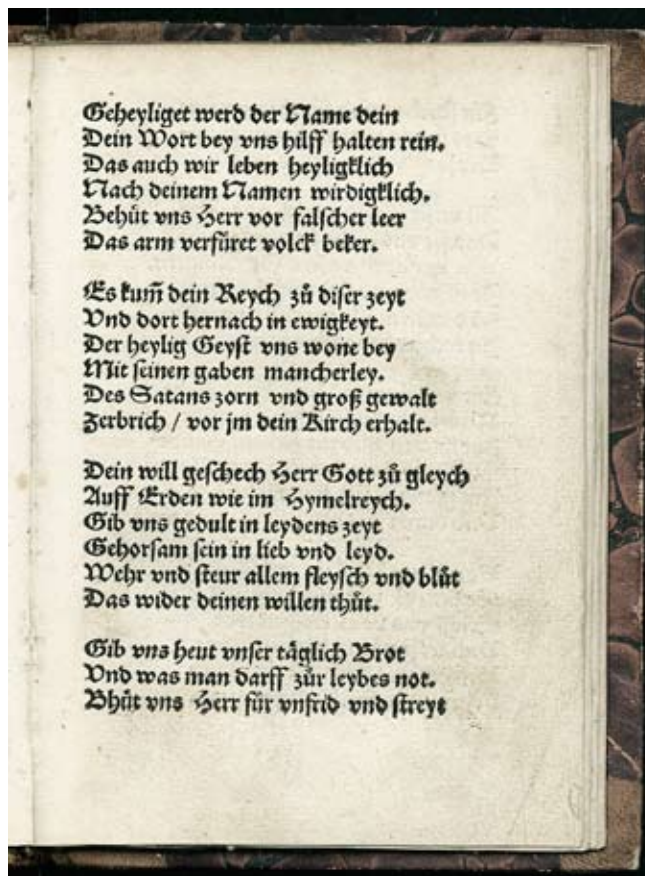 Geheyliget werd der Name dein
Dein Wort bey vns hilff halten rein.
Das auch wir leben heyligklich
Nach deinem Namen wirdigklich.
Behuͤt vns Herr vor falscher leer
Das arm verfuͤret volck beker.
Es kum̄ dein Reych zuͦ diser zeyt
Vnd dort hernach in ewigkeyt.
Der heylig Geyst vns wone bey
Mit seinen gaben mancherley.
Des Satans zorn vnd groß gewalt
Zerbrich / vor jm dein Kirch erhalt.
Dein will geschech Herr Gott zuͦ gleych
Auff Erden wie im Hymelreych.
Gib vns gedult in leydens zeyt
Gehorsam sein in lieb vnd leyd.
Wehr vnd steur allem fleysch vnd bluͦt
Das wider deinen willen thuͦt.
Gib vns heut vnser taͤglich Brot
Vnd was man darff zuͦr leybes not.
Bhuͤt vns Herr für vnfrid vnd streyt